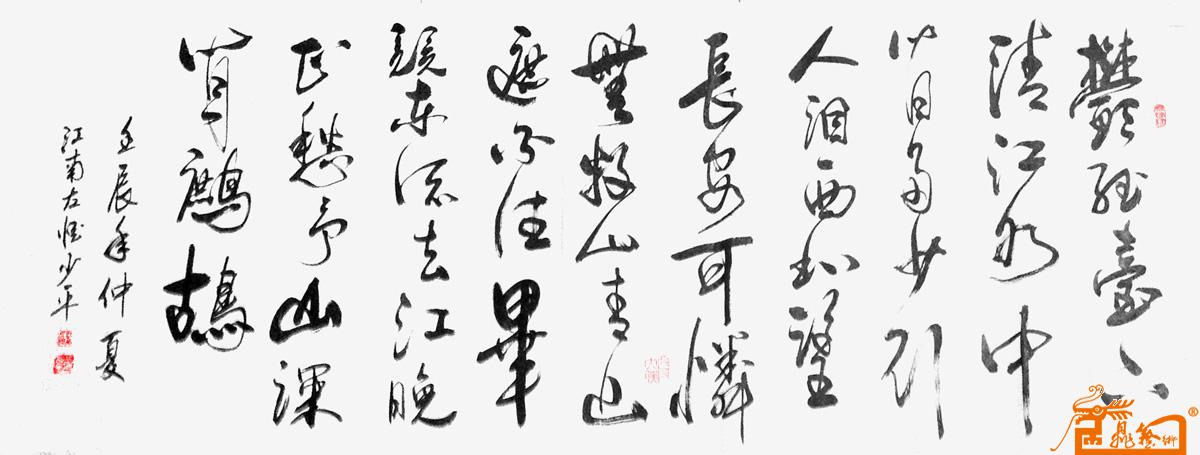 鬱孤臺下
清江水中
間多少行
人泪西北望
長安可憐
無数山青山
遮不住畢
竟東流去江晚
正愁予山深
聞鷓鴣
壬辰年仲夏
江南左少平